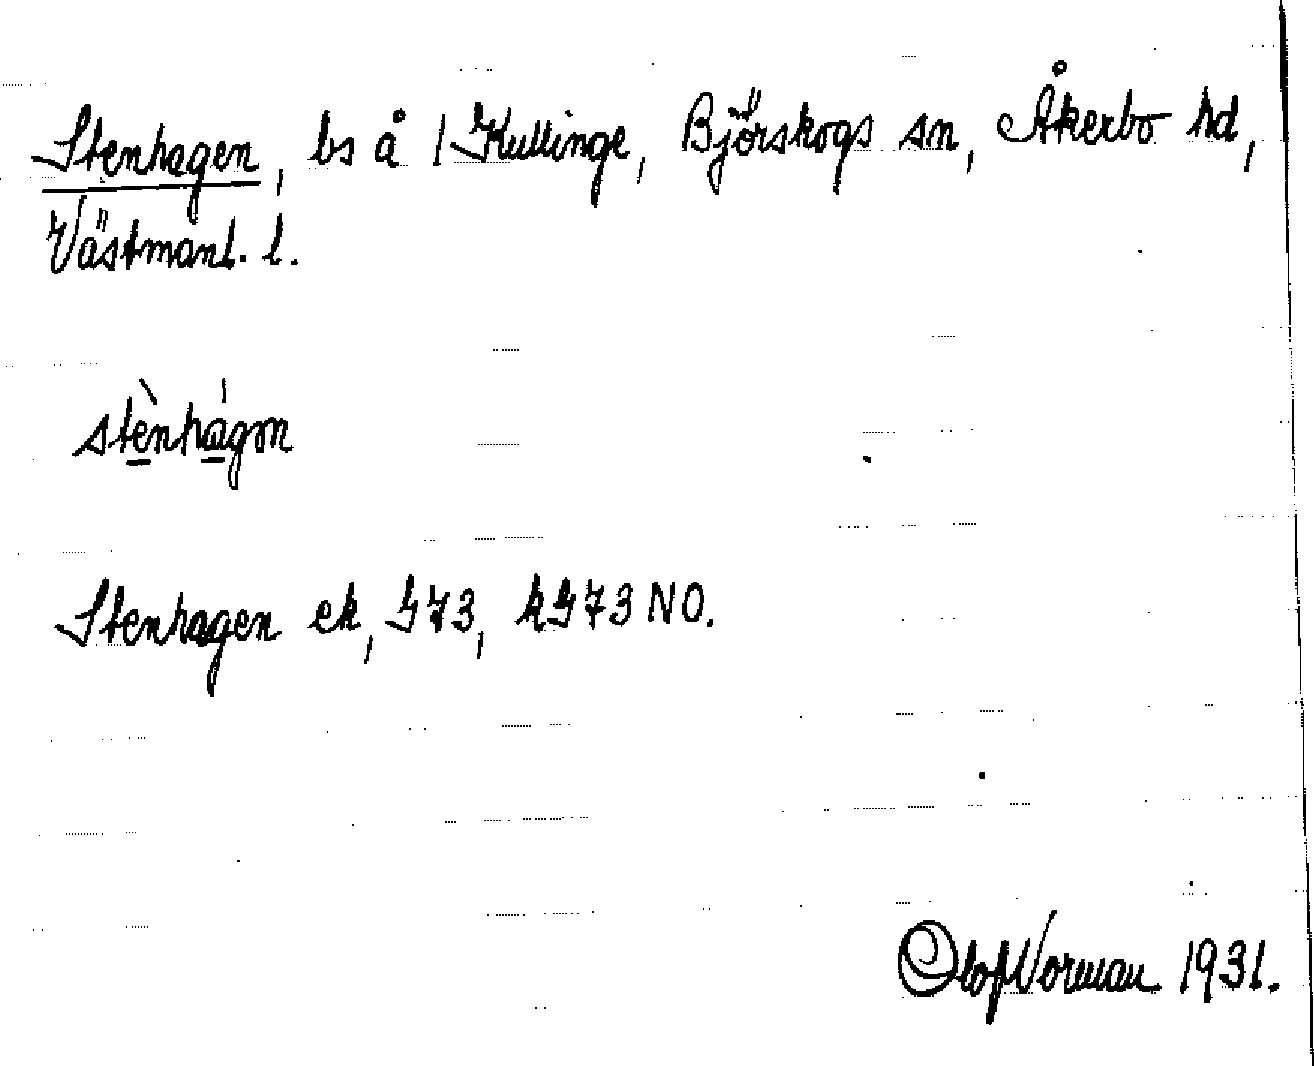 Stenhagen, bs å 1 Kullinge, Björskogs sn, Åkerbo hd,
Västmanl. l.
stènhágɷn
Stenhagen ek, G73, kG73 NO.
Olof Norman 1931.